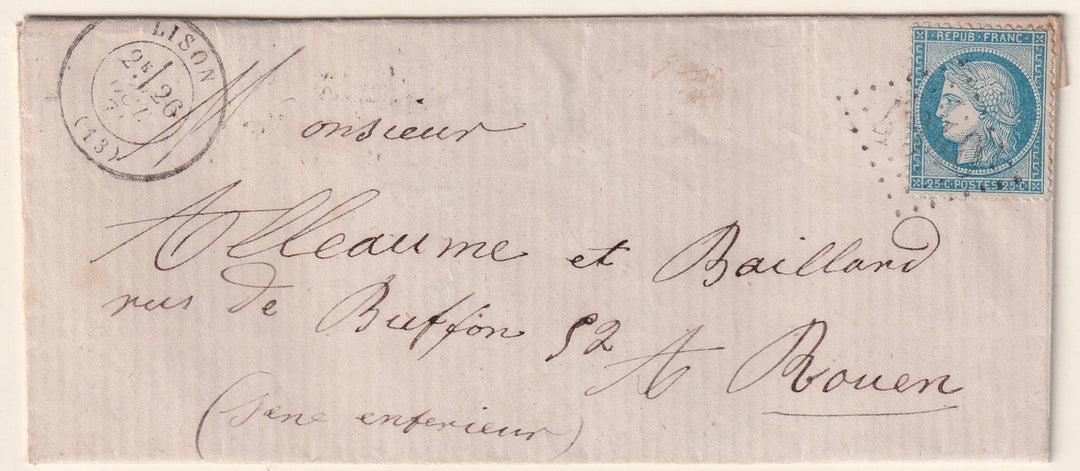 LISON
2E
26
OCT.
(13)
REPUB·FRANC·
25·C·POSTES·25·C
Monsieur
Alleaume et Baillard
rue de Buffon 52
A Rouen
(Sene enferieur)